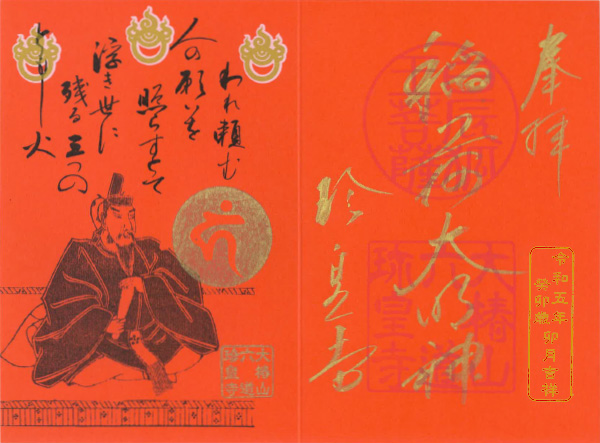 奉拝
稲荷大明神
珍皇寺
辰狐
王菩薩
大椿山
六道
珍皇寺
令和五年
癸卯歳卯月吉祥
われ頼む
人の願を
照らすとて
浮き世に
残る三つの
ともし火
大椿山
六道
珍皇寺